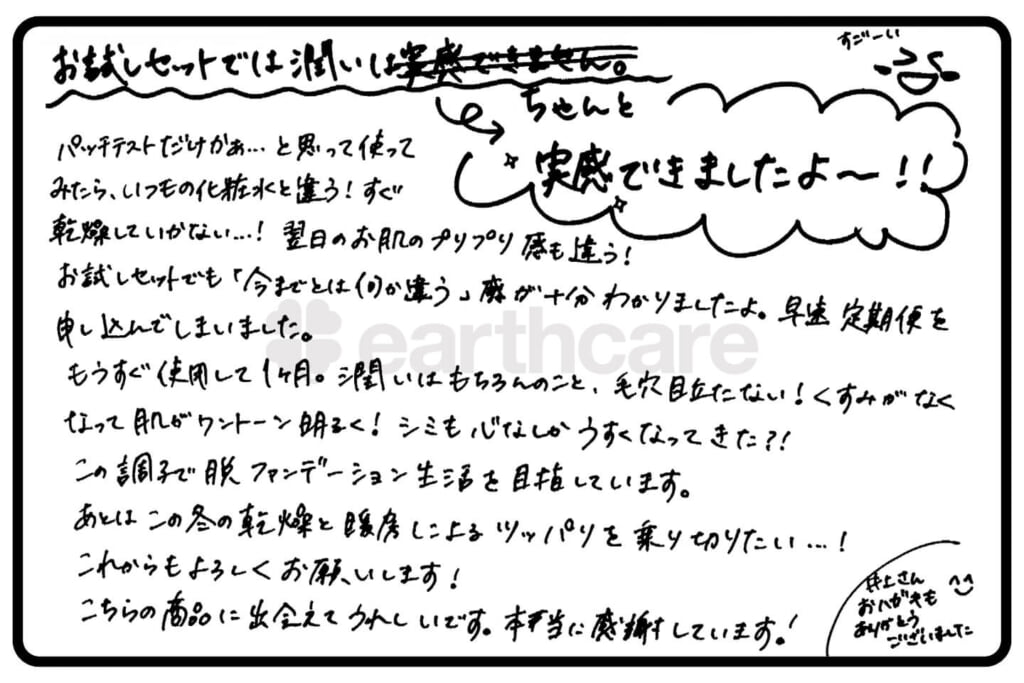 すごーい
お試しセットでは潤いは実感できません。
ちゃんと
実感できましたよ～!!
パッチテストだけかぁ…と思って使って
みたら、いつもの化粧水と違う!すぐ
乾燥していかない…!翌日のお肌のプリプリ感も違う!
お試しセットでも「今までとは何か違う」感が十分わかりましたよ。早速定期便を
申し込んでしまいました。
earthcare
もうすぐ使用して1ヶ月。潤いはもちろんのこと、毛穴目立たない!くすみがなく
なって肌がワントーン明るく!シミも心なしかうすくなってきた?!
この調子で脱ファンデーション生活を目指しています。
あとはこの冬の乾燥と暖房によるツッパリを乗り切りたい…!
これからもよろしくお願いします!
こちらの商品に出会えてうれしいです。本当に感謝しています!
井上さん
おハガキも
ありがとう
ございました